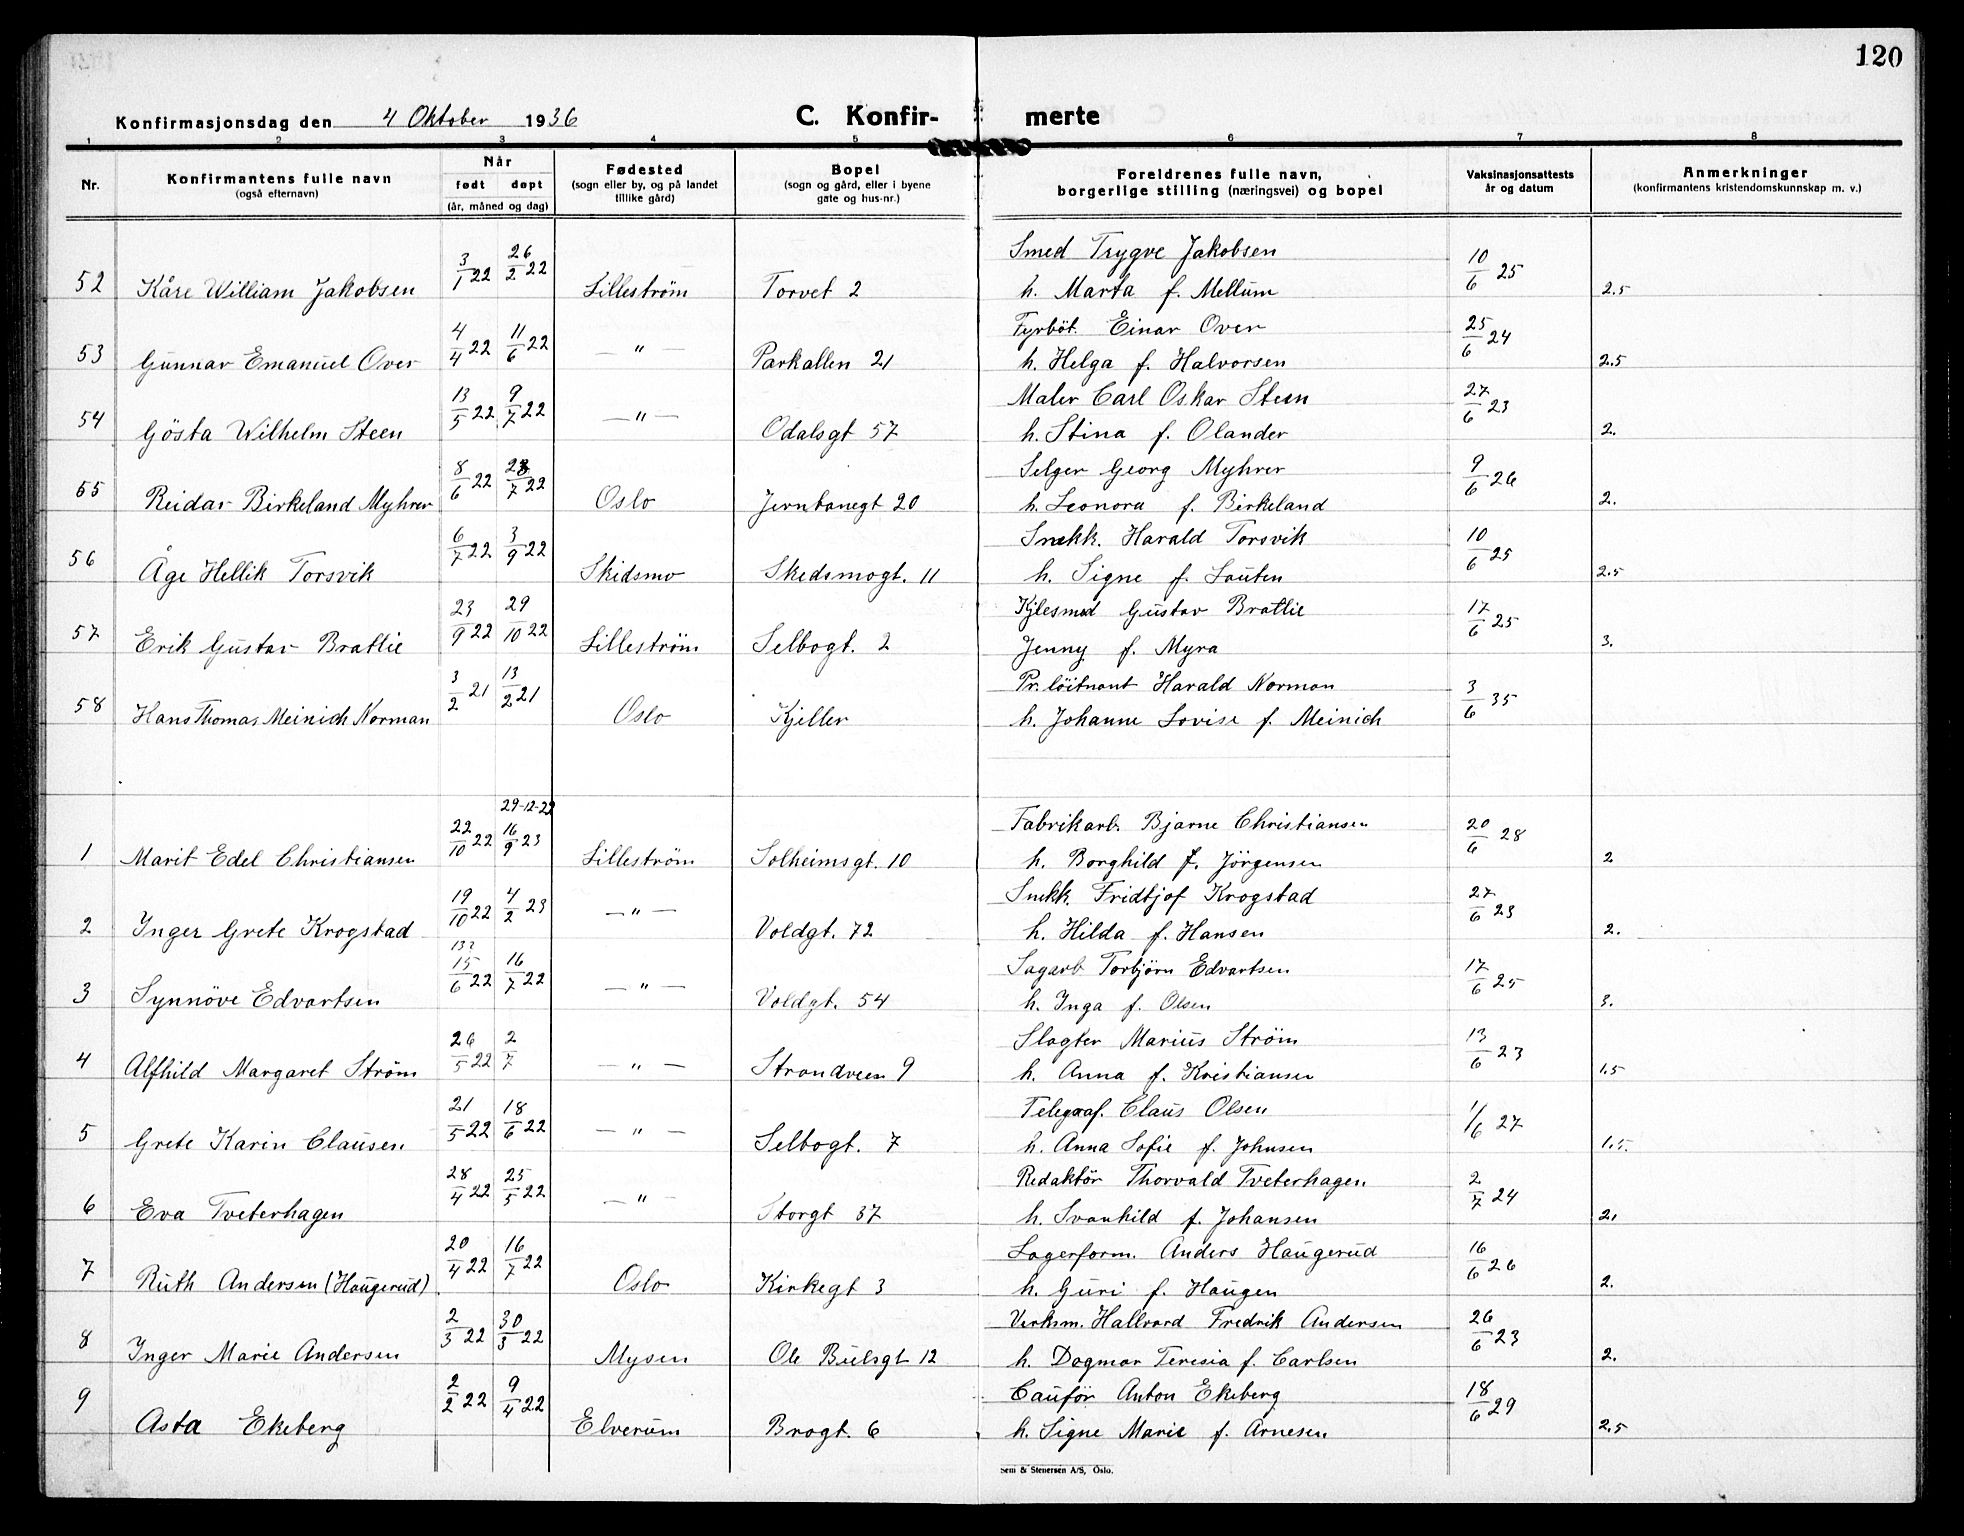 120
Konfirmasjonsdag den 4 Oktober 1936 C. Konfir- merte
1 2 3 4 5 6 7 8
Nr. Konfirmantens fulle navn (også efternavn) Når født døpt (år, måned og dag) Fødested (sogn eller by, og på landet tillike gård) Bopel (sogn og gård, eller i byene gate og hus-nr.) Foreldrenes fulle navn, borgerlige stilling (næringsvei) og bopel Vaksinasjonsattests år og datum Anmerkninger (konfirmantens kristendomskunnskap m. v.)
Smed Trygve Jakobsen
52 Kåre William Jakobsen 3/1 22 26/2 22 Lilleström Torvet 2 h. Marta f. Mellum 10/6 25 2.5
Fyrböt. Einar Over
53 Gunnar Emanuel Over 4/4 22 11/6 22 — " — Parkallen 21 h. Helga f. Halvorsen 25/6 24 2.5
Maler Carl Oskar Steen
54 Gösta Wilhelm Steen 13/5 22 9/7 22 — " — Odalsgt 57 h. Stina f. Olander 27/6 23 2.
Selger Georg Myhrer
55 Reidar Birkeland Myhrer 8/6 22 23/7 22 Oslo Jernbanegt 20 h. Leonora f. Birkeland 9/6 26 2.
Snekk. Harald Torsvik
56 Åge Hellik Torsvik 6/7 22 3/9 22 Skidsmo Skedsmogt. 11 h. Signe f. Lauten 10/6 25 2.5
Kjlesmed Gustav Bratlie
57 Erik Gustav Bratlie 23/9 22 29/10 22 Lilleström Selbogt. 2 Jenny f. Myra 17/6 25 3.
Pr. löitnant Harald Norman
58 Hans Thomas Meinich Norman 3/2 21 13/2 21 Oslo Kjeller h. Johanne Lovise f. Meinich 3/6 35
29-12-22
Fabrikarb. Bjarne Christiansen
1 Marit Edel Christiansen 22/10 22 16/9 23 Lilleström Solheimsgt. 10 h. Borghild f. Jörgensen 20/6 28 2
Snekk. Fridtjof Krogstad
2 Inger Grete Krogstad 19/10 22 4/2 23 — " — Voldgt. 72 h. Hilda f. Hansen 27/6 23 2.
13?
Sagarb Torbjörn Edvartsen
3 Synnöve Edvartsen 15/6 22 16/7 22 — " — Voldgt. 54 h. Inga f. Olsen 17/6 25 3.
Slagter Marius Ström
4 Alfhild Margaret Ström 26/5 22 2/7 — " — Strandveien 9 h. Anna f. Kristiansen 13/6 23 1.5
Telegraf. Claus Olsen
5 Grete Karin Clausen 21/5 22 18/6 22 — " — Selbogt. 7 h. Anna Sofie f. Johnsen 1/6 27 1.5.
Redaktör Thorvald Tveterhagen
6 Eva Tveterhagen 28/4 22 25/5 22 — " — Storgt 37 h. Svanhild f. Johansen 2/7 24 2.
Lagerform. Anders Haugerud
7 Ruth Andersen (Haugerud) 20/4 22 16/7 22 Oslo Kirkegt 3 h. Guri f. Haugen 16/6 26 2.
Verksm. Hallvard Fredrik Andersen
8 Inger Marie Andersen 2/3 22 30/3 22 Mysen Ole Bulsgt 12 h. Dagmar Teresia f. Carlsen 26/6 23 2.
Cauför Anton Ekeberg
9 Asta Ekeberg 2/2 22 9/4 22 Elverum Brogt. 6 h. Signe Marie f. Arnesen 18/6 29 2.5
Sem & Stenersen A/S, Oslo.